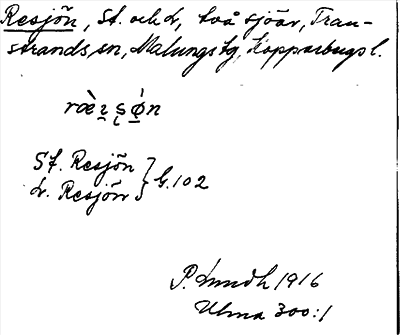 Resjön, St. och L., två sjöar, Tran-
strands sn, Malungs tg, Kopparbergs l.
St. Resjön
L. Resjön } G. 102
P. Lundh 1916
Ulma 300:1